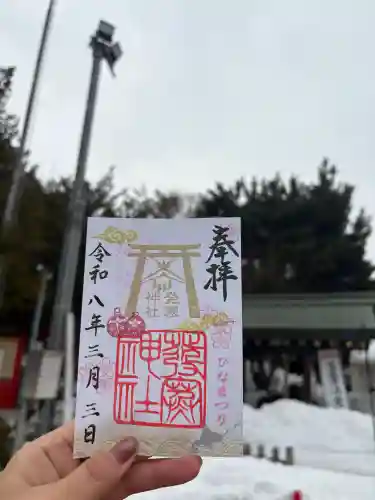 奉拝
発寒
神社
發寒
神社
ひなまつり
令和八年三月三日